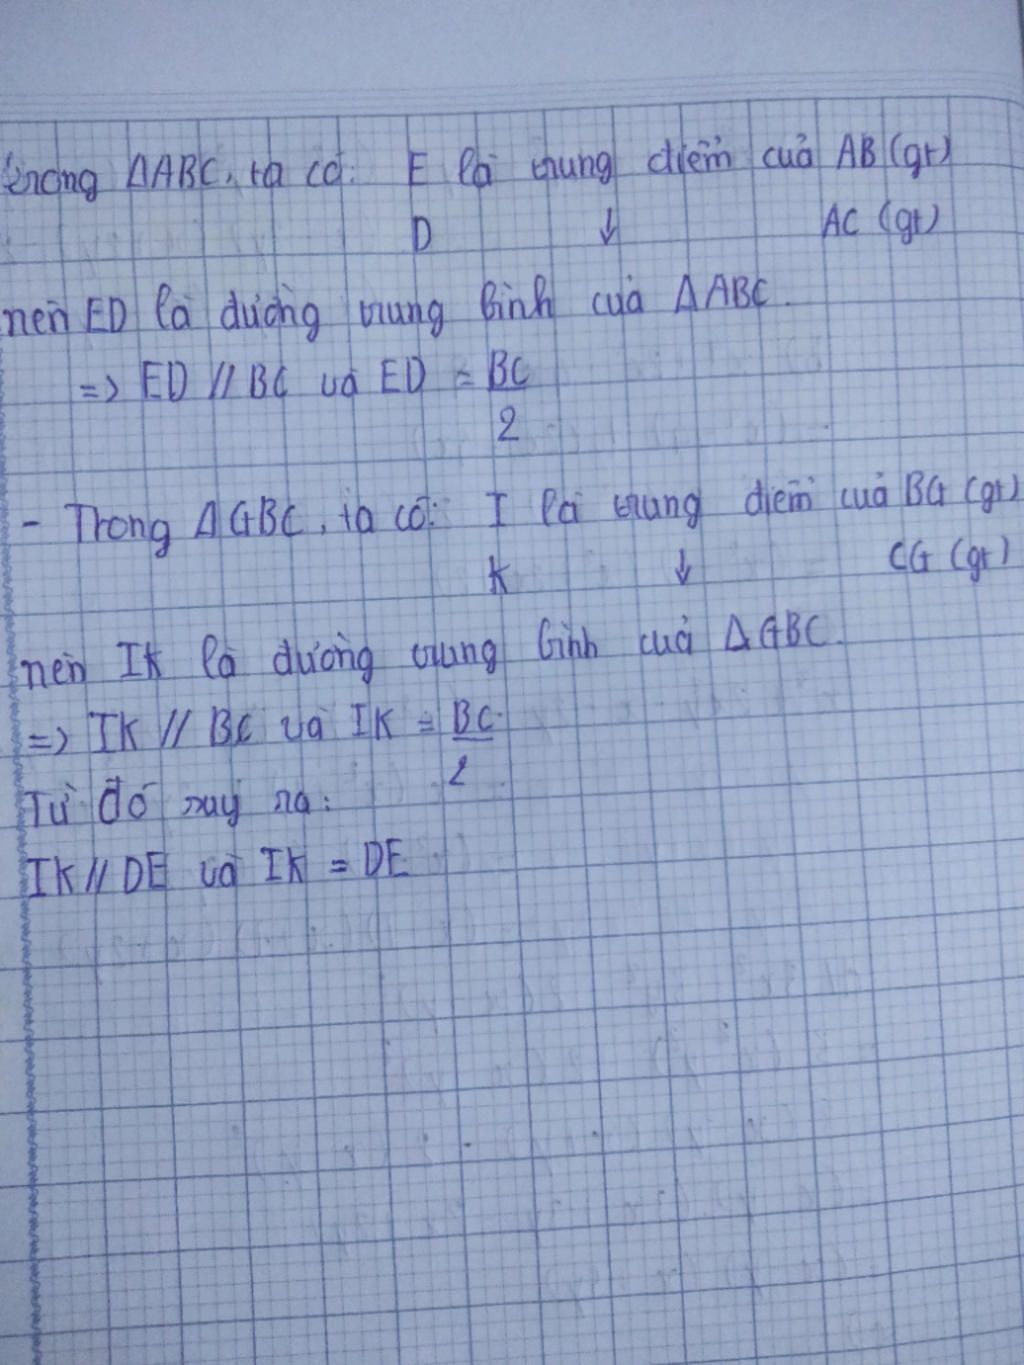 trong ΔABC, ta có: E là trung điểm của AB (gt)
D ↓ AC (gt)
nên ED là đường trung bình của ΔABC.
=> ED // BC và ED = BC
2
- Trong ΔGBC, ta có: I là trung điểm của BG (gt)
K ↓ CG (gt)
nên IK là đường trung bình của ΔGBC.
=> IK // BC và IK = BC
2
Từ đó suy ra:
IK // DE và IK = DE